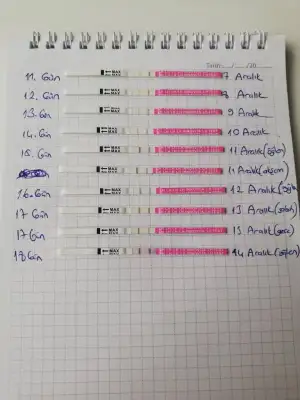 Tarih: / /20
11. Gün MAX 7 Aralık
12. Gün MAX 8 Aralık
13. Gün MAX 9 Aralık
14. Gün MAX 10 Aralık
15. Gün MAX 11 Aralık (öğlen)
MAX 11 Aralık (akşam)
16. Gün MAX 12 Aralık (öğlen)
17 Gün MAX 13 Aralık
17 Gün MAX 13 Aralık (gece)
18 Gün MAX 14 Aralık (öğlen)